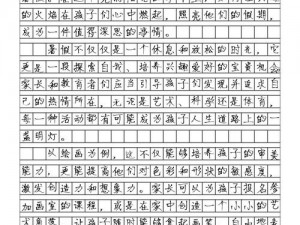 的火焰在孩子们心中燃起，照亮他们的假期，
成为一件值得深思的事情。
暑假不仅仅是一个休息和放松的时光，它
更是一段探索自我、培养兴趣爱好的宝贵机会
家长和教育者们应当引导孩子们发现并追求自
己的热情所在，无论是艺术、科学还是体育，
每一种活动都有可能成为孩子人生道路上的一
盏明灯。
以绘画为例，这不仅能够培养孩子的审美
能力，更能提高他们对色彩和形状的敏感度，
激发创造力和想象力。家长可以为孩子报名参
加画室的课程，或是在家中创建一个小小的艺
术角落，让孩子随时能够拿起画笔，自由